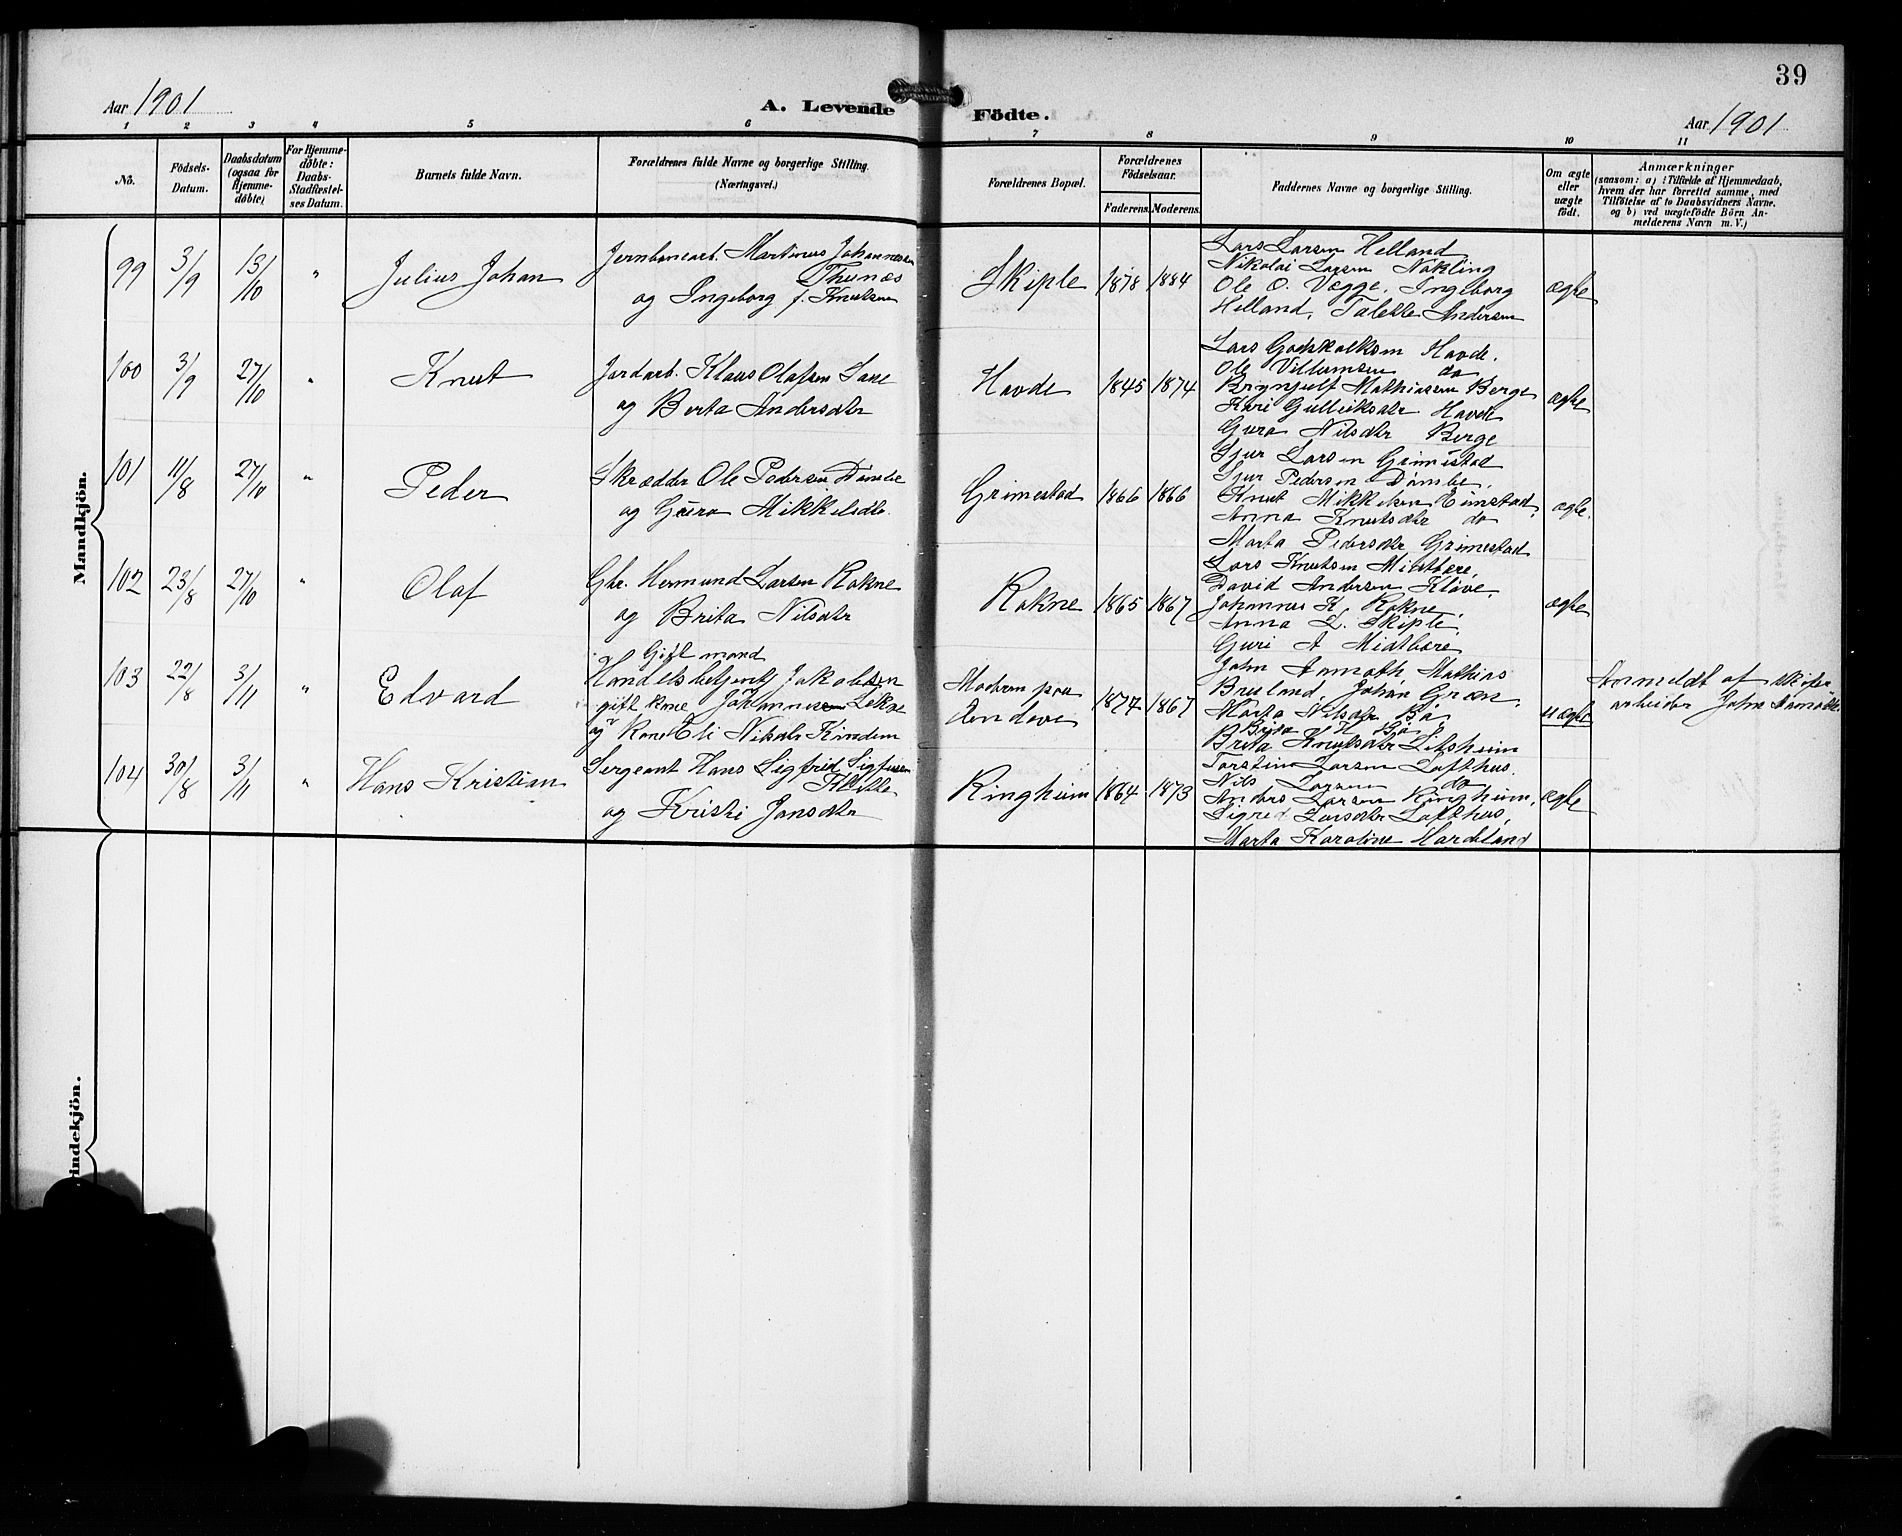 39
Aar 1901
A. Levende Födte.
Aar 1901
1 2 3 4 5 6 7 8 9 10 11
No.
Födsels-
Datum.
Daabsdatum
(ogsaa for
Hjemme-
døbte)
For Hjemme-
døbte:
Daabs-
Stadfæstel-
ses Datum.
Barnets fulde Navn.
Forældrenes fulde Navne og borgerlige Stilling.
(Næringsvei.)
Forældrenes Bopæl.
Forældrenes
Födselsaar.
Faderens. Moderens.
Faddernes Navne og borgerlige Stilling.
Om ægte
eller
uægte
födt.
Anmærkninger
(saasom: a) i Tilfælde af Hjemmedaab,
hvem der har forrettet samme, med
Tilföielse af to Daabsvidners Navne.
og b) ved uægtefödte Börn An-
melderens Navn m. V.)
Mandkjön.
99 3/9 13/10 " Julius Johan
Jernbanearb. Martinus Johannessen
Thunæs
og Ingeborg f. Knutsen
Skiple 1878 1884
Lars Larsen Helland
Nikolai Larsen Nökling
Ole O. Vægge, Ingeborg
Helland, Talette Andersen
ægte
100 3/9 27/10 " Knut
Jordarb. Klaus Olafsen Saue
og Berta Andersdtr
Havde 1845 1874
Lars Godskalksen Havde.
Ole Villumsen do
Brynjulf Mathiasen Berge
Kari Gulleiksdtr Havde
Guro Nilsdtr Berge
ægte
101 11/8 27/10 " Peder
Skrædder Ole Pedersen Dömbe
og Guro Mikkelsdtr
Grimestad 1866 1866
Sjur Larsen Grimestad
Sjur Pedersen Dömbe.
Knut Mikkelsen Eimstad,
Anna Knutsdtr do
Marta Pedersdtr Grimestad
ægte.
102 23/8 27/10 " Olaf
Gbr. Hermund Larsen Rokne
og Brita Nilsdtr
Rokne 1865 1867
Lars Knutsen Midtbøre
David Andersen Kløve.
Johannes K. Rokne,
Anna L. Skiple,
Guri A Midtbøre
ægte
103 22/8 3/11 " Edvard
Gift mand
Handelsbetjent Jakobsen
gift kone Johannesen Lekve
og Kone Eli Nilsdtr Kindem
Moderen paa
Endeve 1874 1867
John Aamoth Mathias
Bruland, Johan Græn,
Marta Nilsdtr Bö,
Brita K Bö,
Brita Knutsdtr Litsheim
uægte
Anmeldt af skifer
arbeider John Aamoth.
104 30/8 3/11 " Hans Kristian
Sergeant Hans Sigfred Sigfusen
og Kristi Jonsdtr
Ringheim 1864 1873
Torstein Larsen Lofthus.
Nils Larsen do
Anders Larsen Ringheim,
Sigred Larsdtr Lofthus,
Marta Karoline Mardeland
ægte
indekjön.